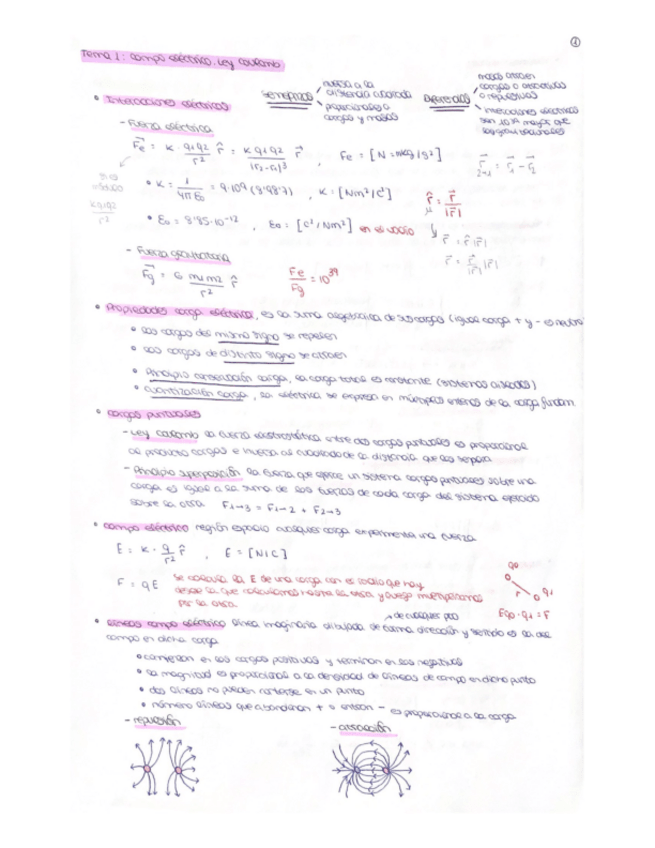 1
Tema 1: campo eléctrico. Ley Coulomb
• Interacciones eléctricas
semejanzas
inversa a la distancia cuadrada
proporcionales a cargas y masas
Diferencias
masas atraen cargas o atractivas o repulsivas
interacciones eléctricas son 10³⁹ mayor que las gravitacionales
- Fuerza eléctrica
Fe = K · q1q2 / r² r̂ = K q1q2 / |r2-r1|³ r⃗ , Fe = [N = mkg/s²]
r⃗ 2→1 = r⃗1 - r⃗2
si es módulo
K q1q2 / r²
• K = 1 / 4πε0 = 9·10⁹ (8'98·7) , K = [Nm²/C²]
r̂ = r⃗ / |r⃗|
• ε0 = 8'85·10⁻¹² , ε0 = [C²/Nm²] en el vacío
r⃗ = r̂·|r⃗|
r⃗ = r⃗/|r⃗| |r⃗|
- Fuerza gravitatoria
Fg = G m1m2 / r² r̂
Fe / Fg = 10³⁹
• Propiedades carga eléctrica, es la suma algebraica de sus cargas (igual carga + y - es neutro)
• las cargas del mismo signo se repelen
• las cargas de distinto signo se atraen
• Principio conservación carga, la carga total es constante (sistemas aislados)
• cuantización carga, la eléctrica se expresa en múltiplos enteros de la carga fundam.
• cargas puntuales
- Ley Coulomb la fuerza electrostática entre dos cargas puntuales es proporcional
al producto cargas e inversa al cuadrado de la distancia que las separa
- Principio superposición la fuerza que ejerce un sistema cargas puntuales sobre una
carga es igual a la suma de las fuerzas de cada carga del sistema ejercido
sobre la otra F1→3 = F1→2 + F2→3
• campo eléctrico región espacio cualquier carga experimenta una fuerza
E = K · q / r² r̂ , E = [N/C]
F = qE
se calcula la E de una carga con el radio que hay
desde la que calculamos hasta la otra y luego multiplicamos
por la otra
q0
r
q1
Eq0 · q1 = F
de cualquier pto
• Líneas campo eléctrico línea imaginaria dibujada de forma dirección y sentido es la del
campo en dicha carga
• comienzan en las cargas positivas y terminan en las negativas
• la magnitud es proporcional a la densidad de líneas de campo en dicho punto
• dos líneas no pueden cortarse en un punto
• número líneas que abandonan + o entran - es proporcional a la carga
- repulsión
- atracción